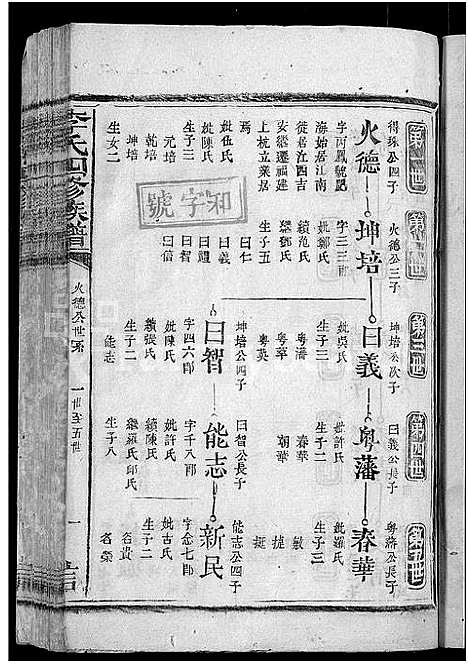 第一世
得珠公四子
火德
字丙鳳號記
海始居江南
徙居江西吉
安繼遷福建
上杭立業居
焉
妣伍氏
妣陳氏
生子三
元培
乾培
坤培
生女二
第二世
火德公三子
坤培
字三三郎
妣鄭氏
續范氏
繼鄧氏
生子五
曰仁
曰義
曰禮
曰智
曰信
第三世
坤培公次子
曰義
妣吳氏
生子三
粵藩
粵華
粵英
坤培公四子
曰智
字四六郎
妣陳氏
續張氏
生子二
能志
第四世
曰義公長子
粵藩
妣許氏
生子二
春華
朝華
曰智公長子
能志
字千八郎
妣許氏
續陳氏
繼羅氏邱氏
生子八
第五世
粵藩公長子
春華
妣羅氏
生子三
敏
捷
挺
能志公四子
新民
字念七郎
妣古氏
生子二
名貴
名榮
和字號
李氏四修族譜
火德公世系
一世至五世
一